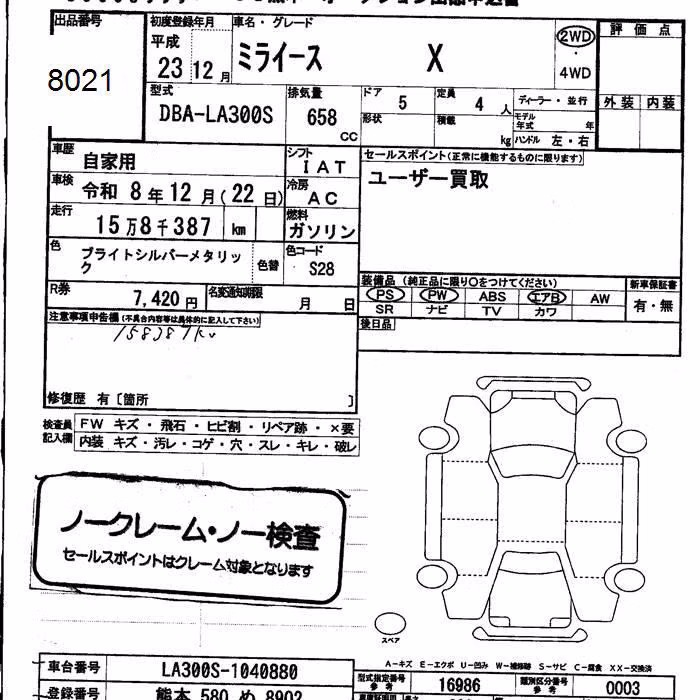 出品番号
8021
初度登録年月
平成
23 12月
車名・グレード
ミライース X
2WD
・
4WD
評価点
外装 内装
型式
DBA-LA300S
排気量
658
CC
ドア 5
定員 4 人
ディーラー・並行
形状
積載 kg
モデル年式 年
ハンドル 左・右
車歴
自家用
シフト
I A T
車検 令和 8年 12月(22日)
冷房
A C
走行
15万8千387 km
燃料
ガソリン
色
ブライトシルバーメタリック
色替
色コード
S28
R券
7,420円
名変通知期限
月 日
セールスポイント(正常に機能するものに限ります)
ユーザー買取
装備品(純正品に限り○をつけてください)
PS PW ABS エアB AW
SR ナビ TV カワ
新車保証書
有・無
後日品
注意事項申告欄(不具合内容等は具体的に記入して下さい)
158387km
修復歴 有〔箇所 〕
検査員記入欄
FW キズ・飛石・ヒビ割・リペア跡・×要
内装 キズ・汚レ・コゲ・穴・スレ・キレ・破レ
ノークレーム・ノー検査
セールスポイントはクレーム対象となります
スペア
A-キズ E-エクボ U-凹み W-補修跡 S-サビ C-腐食 XX-交換済
車台番号
LA300S-1040880
型式指定番号
参考
16986
類別区分番号
参考
0003
登録番号
熊本 580 め 8902